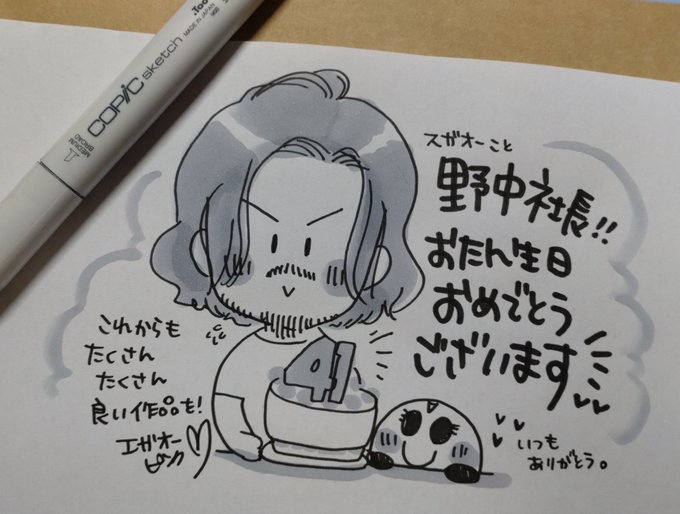 .Too
MADE IN JAPAN
COPIC sketch
MEDIUM
BROAD
スガオーこと
野中社長!!
おたん生日
おめでとう
ございます
これからも
たくさん
たくさん
良い作品も!
エガオー
ピンク
41
いつも
ありがとう。